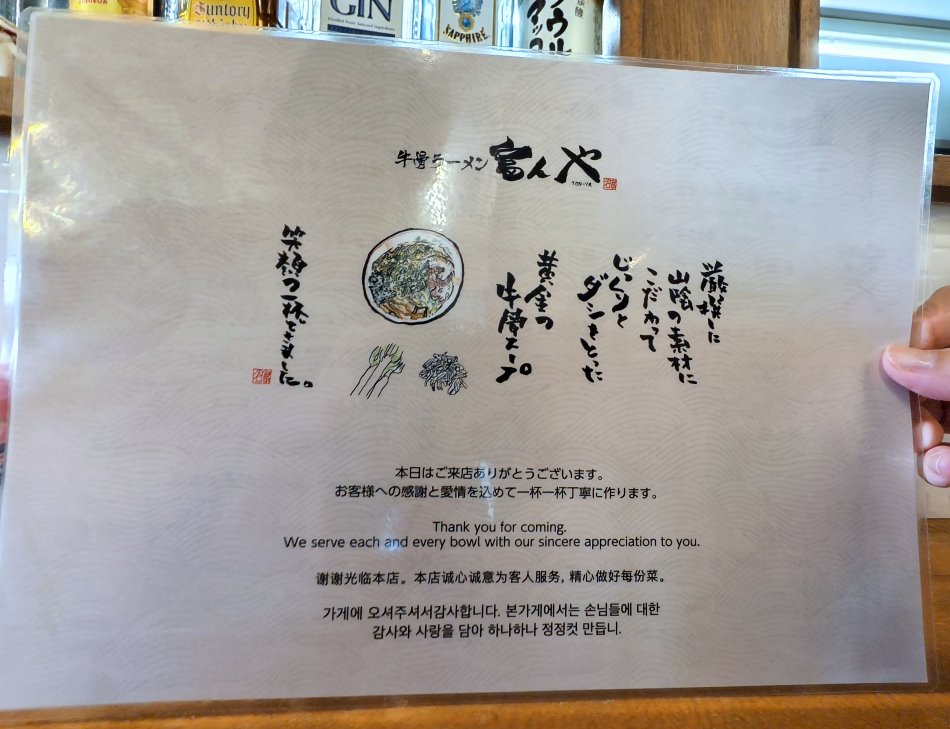 Suntory
GIN
SAPPHIRE
牛骨ラーメン 富んや
TON-YA
厳撰した
山陰の素材に
こだわって
じっくりと
ダシをとった
黄金の
牛骨スープ。
笑顔の一杯できました。
本日はご来店ありがとうございます。
お客様への感謝と愛情を込めて一杯一杯丁寧に作ります。
Thank you for coming.
We serve each and every bowl with our sincere appreciation to you.
谢谢光临本店。本店诚心诚意为客人服务, 精心做好每份菜。
가게에 오셔주셔서감사합니다. 본가게에서는 손님들에 대한
감사와 사랑을 담아 하나하나 정정컷 만듭니.